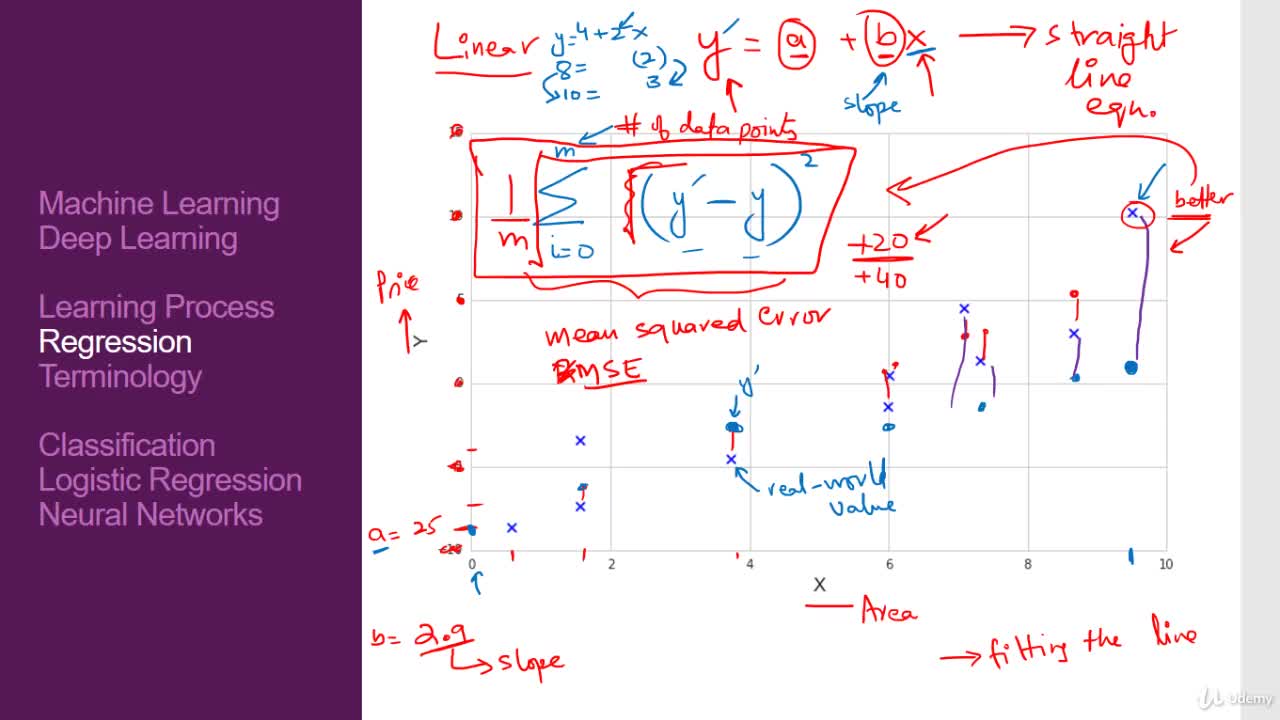 Machine Learning
Deep Learning
Learning Process
Regression
Terminology
Classification
Logistic Regression
Neural Networks
Linear
y=4+2x
8=
10=
(2)
3
y′ = a + bx → straight
line
eqn.
slope
# of data points
m
1/m ∑ √(y′ − y)²
i=0
better
+20
+40
Price
Y
mean squared error
MSE
y′
real-world
value
a = 25
0 2 4 6 8 10
X
Area
b = 2.9
→ slope
→ fitting the line
Udemy